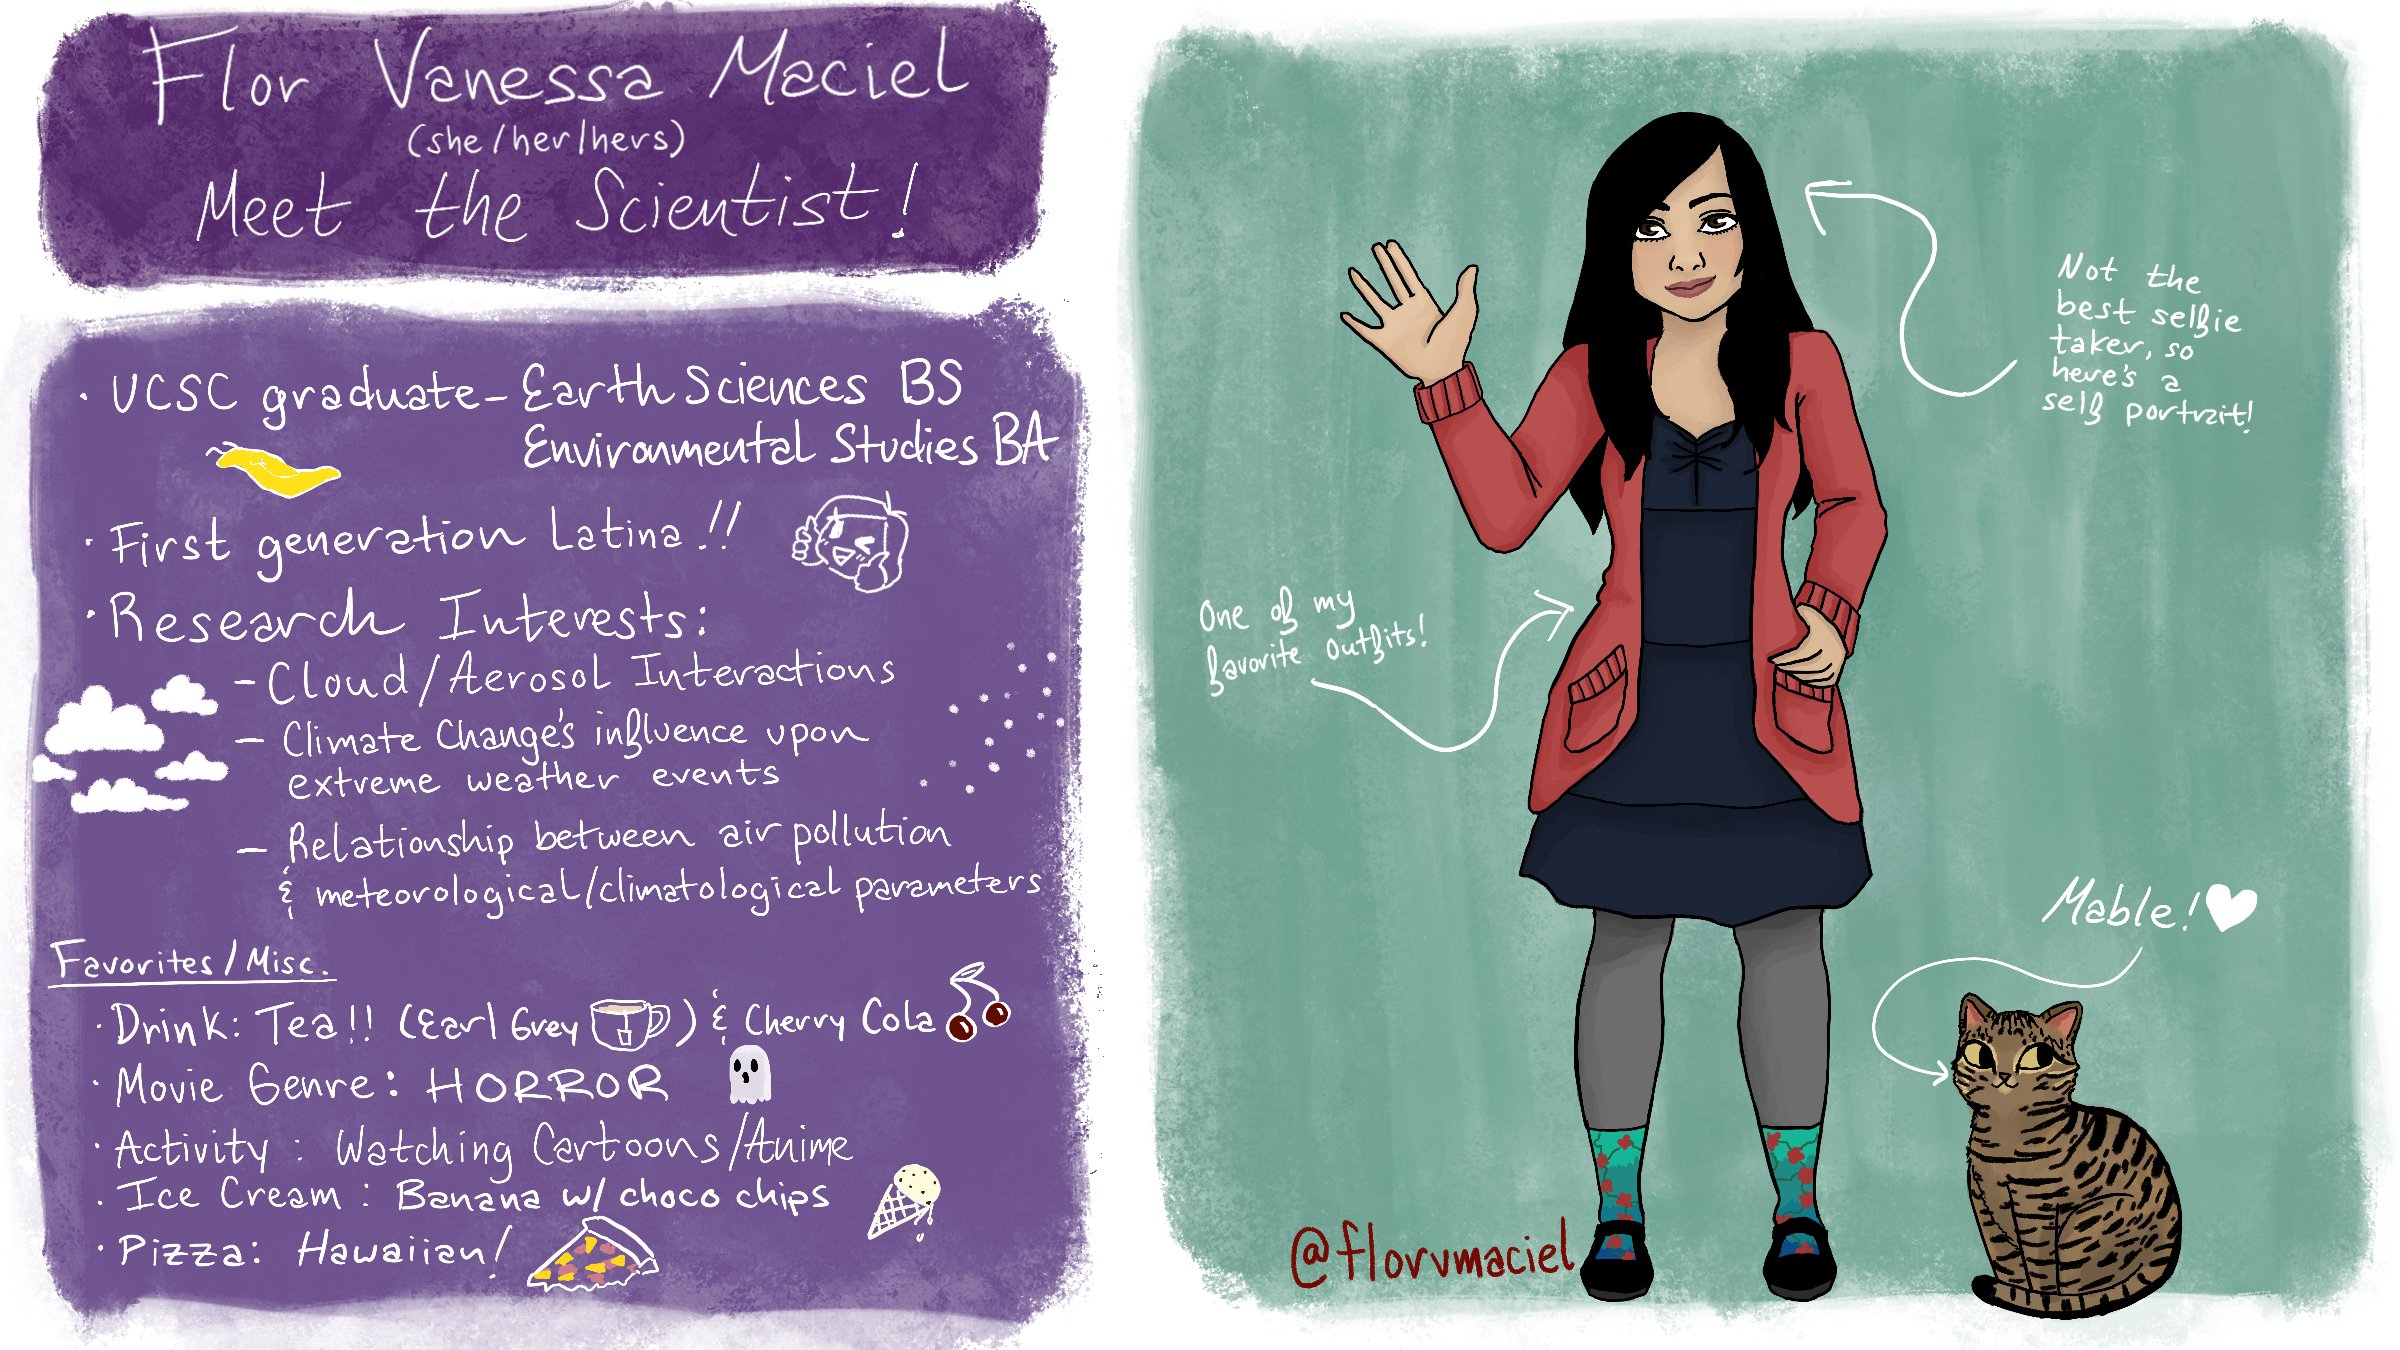 Flor Vanessa Maciel
(she/her/hers)
Meet the Scientist!
· UCSC graduate - Earth Sciences BS
Environmental Studies BA
· First generation Latina!!
· Research Interests:
- Cloud/Aerosol Interactions
- Climate Change's influence upon
extreme weather events
- Relationship between air pollution
& meteorological/climatological parameters
Favorites/Misc.
· Drink: Tea!! (Earl Grey ) & Cherry Cola
· Movie Genre: HORROR
· Activity: Watching Cartoons/Anime
· Ice Cream: Banana w/ choco chips
· Pizza: Hawaiian!
Not the
best selfie
taker, so
here's a
self portrait!
One of my
favorite outfits!
Mable!
@florvmaciel